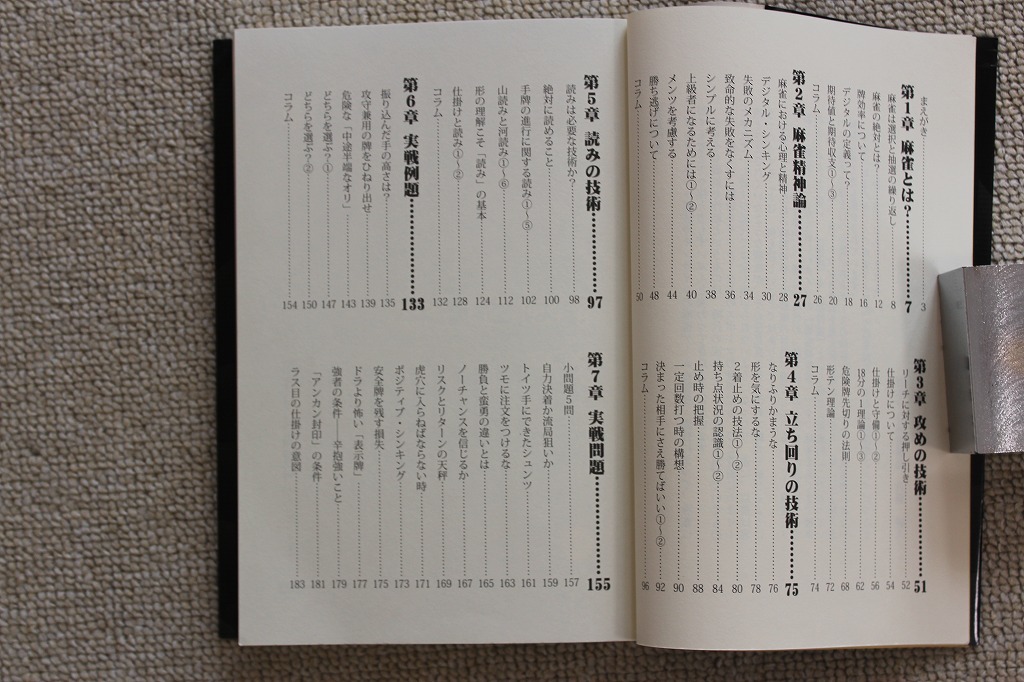 まえがき……3
第1章 麻雀とは？……7
麻雀は選択と抽選の繰り返し……8
麻雀の絶対とは？……12
牌効率について……16
デジタルの定義って？……18
期待値と期待収支①〜③……20
コラム……26
第2章 麻雀精神論……27
麻雀における心理と精神……28
デジタル・シンキング……30
失敗のメカニズム……34
致命的な失敗をなくすには……36
シンプルに考える……38
上級者になるためには①〜②……40
メンツを考慮する……44
勝ち逃げについて……48
コラム……50
第3章 攻めの技術……51
リーチに対する押し引き……52
仕掛けについて……54
仕掛けと守備①〜②……56
18分の1理論①〜③……62
危険牌先切りの法則……68
形テン理論……72
コラム……74
第4章 立ち回りの技術……75
なりふりかまうな……76
形を気にするな……78
2着止めの技法①〜②……80
持ち点状況の認識①〜②……84
止め時の把握……88
一定回数打つ時の構想……90
決まった相手にさえ勝てばいい①〜②……92
コラム……96
第5章 読みの技術……97
読みは必要な技術か？……98
絶対に読めること……100
手牌の進行に関する読み①〜⑤……102
山読みと河読み①〜⑥……112
形の理解こそ「読み」の基本……124
仕掛けと読み①〜②……128
コラム……132
第6章 実戦例題……133
振り込んだ手の高さは？……135
攻守兼用の牌をひねり出せ……139
危険な「中途半端なオリ」……143
どちらを選ぶ？①……147
どちらを選ぶ？②……150
コラム……154
第7章 実戦問題……155
小問題5問……157
自力決着か流局狙いか……159
トイツ手にできたシュンツ……161
ツモに注文をつけるな……163
勝負と蛮勇の違いとは……165
ノーチャンスを信じるか……167
リスクとリターンの天秤……169
虎穴に入らねばならない時……171
ポジティブ・シンキング……173
安全牌を残す損失……175
ドラより怖い「表示牌」……177
強者の条件――辛抱強いこと……179
「アンカン封印」の条件……181
ラス目の仕掛けの意図……183